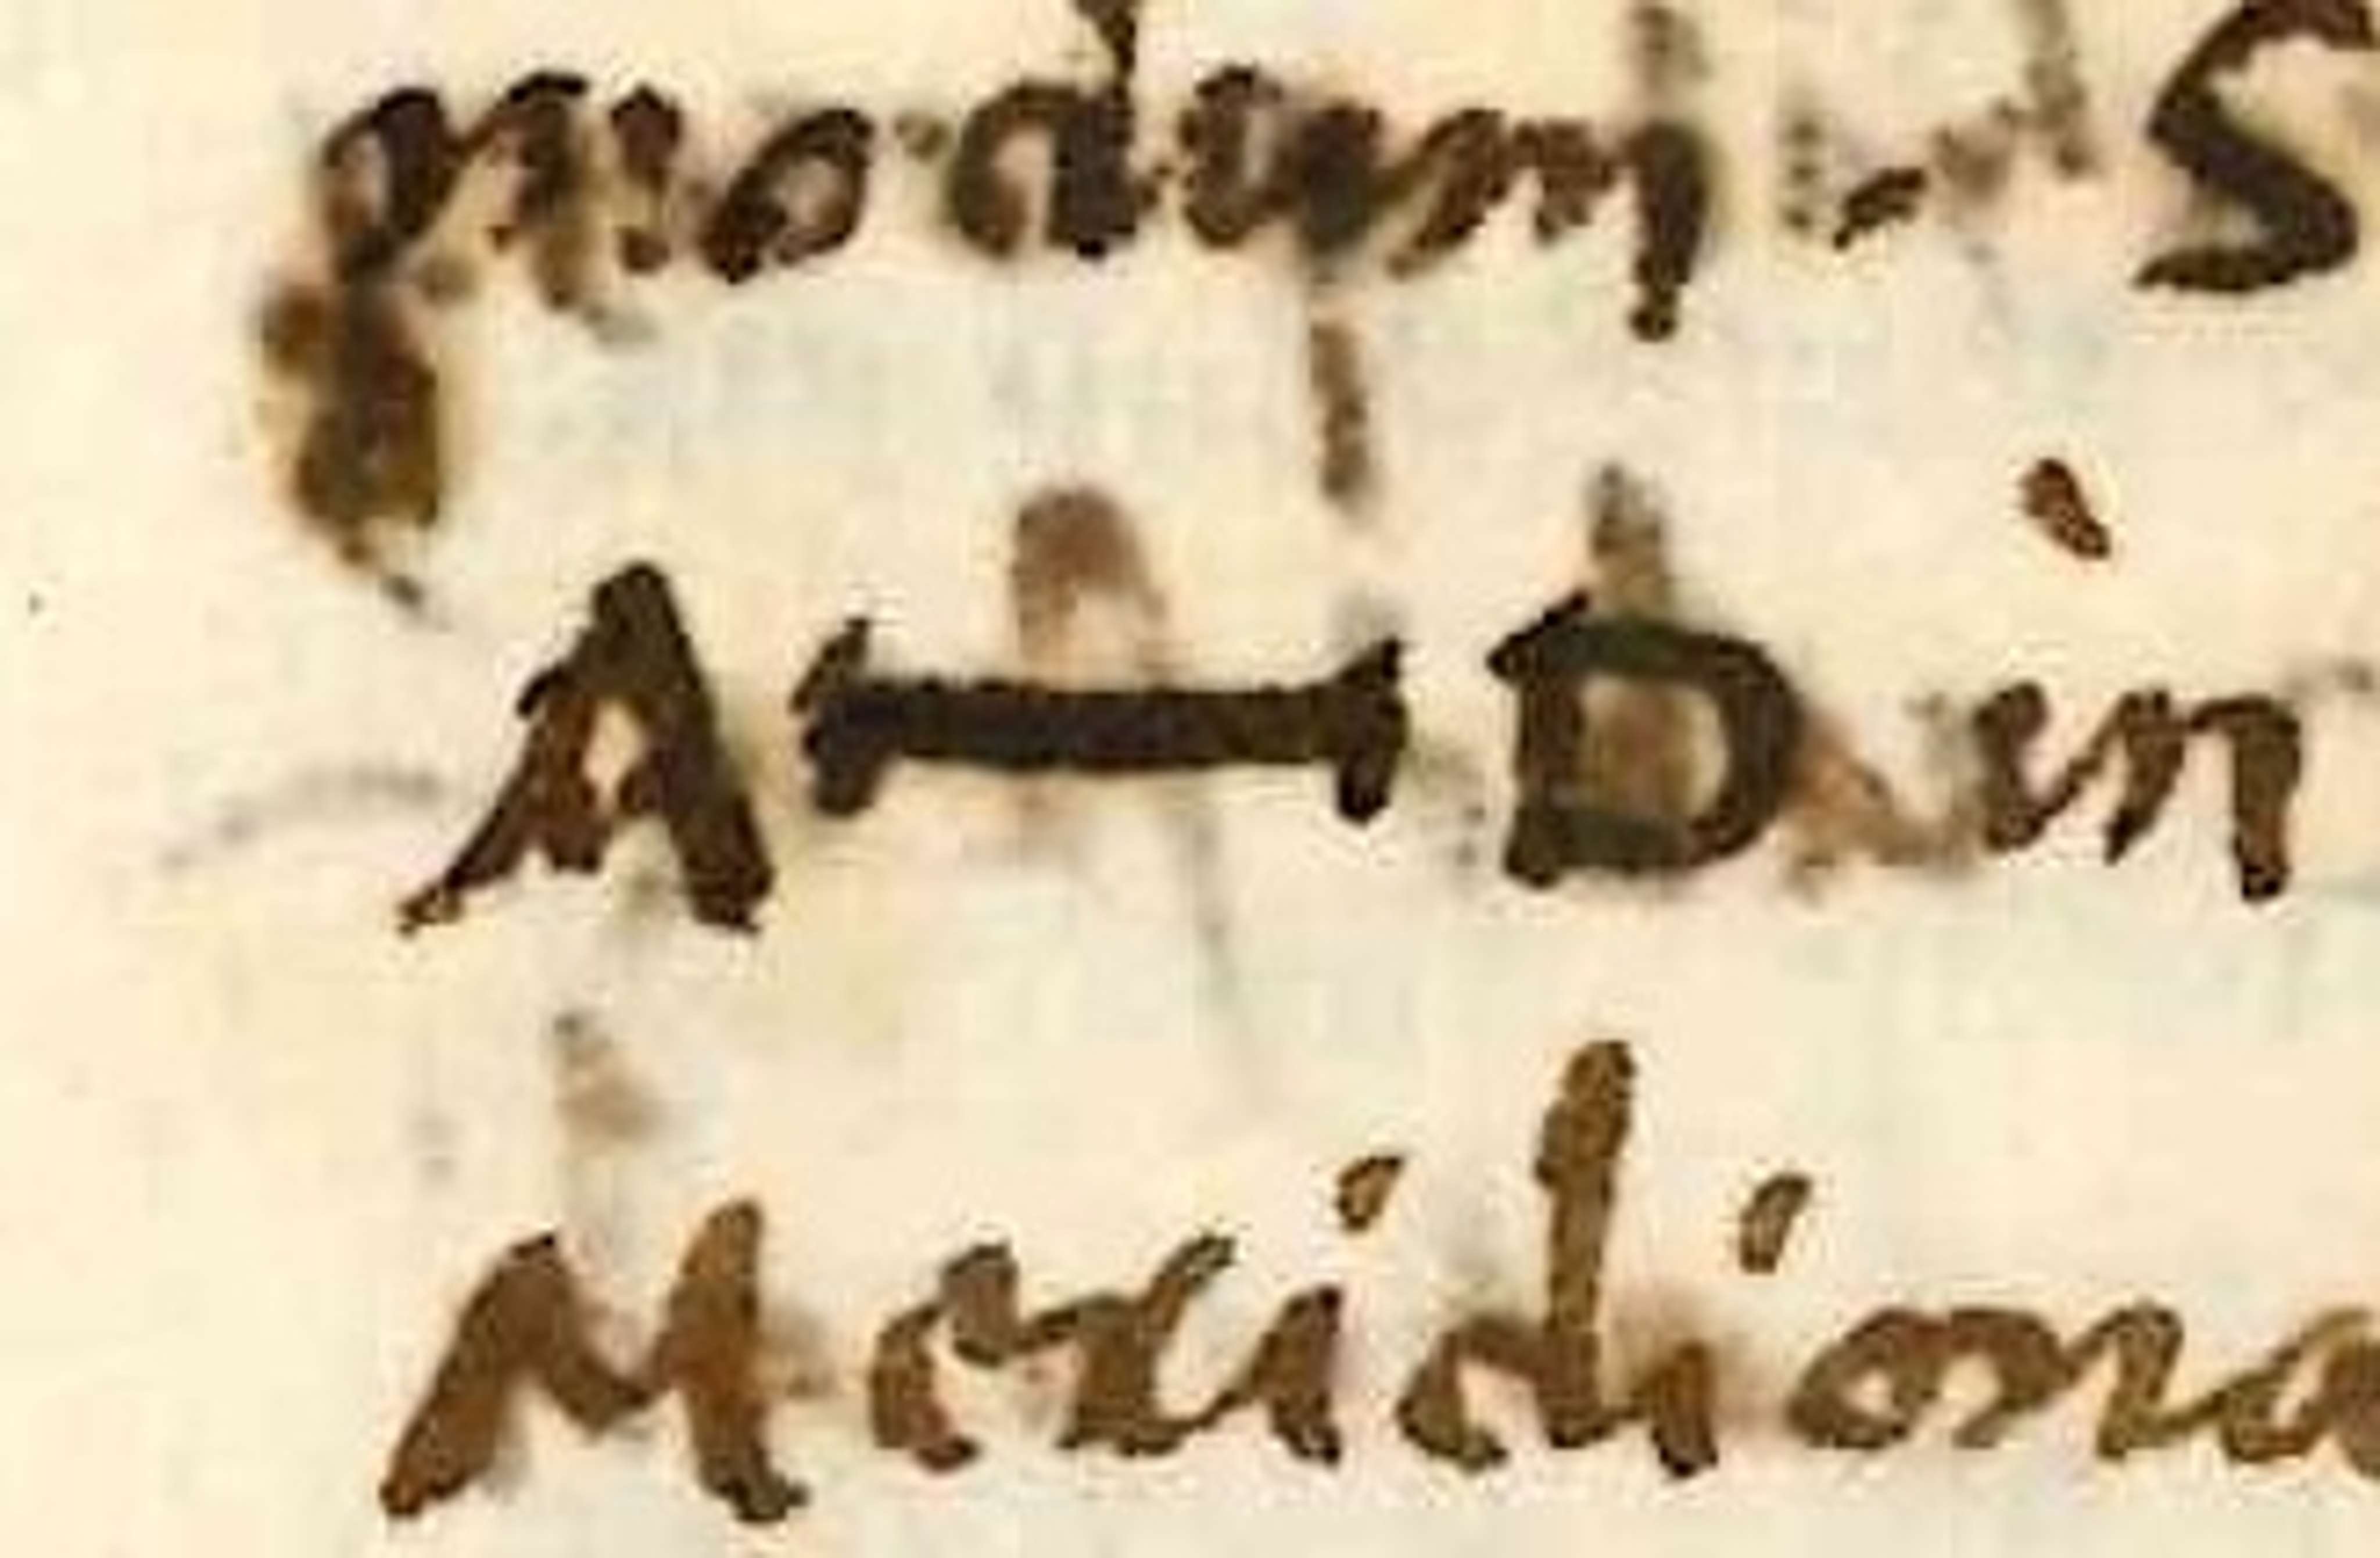 modum . S
A⊢⊣D in
Meridiona